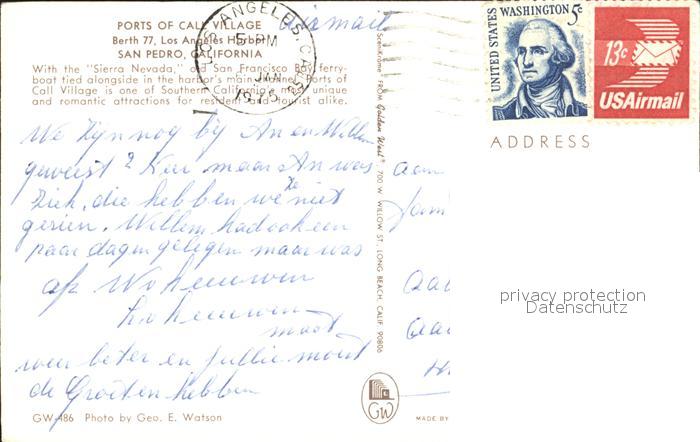 PORTS OF CALL VILLAGE
Berth 77, Los Angeles Harbor
SAN PEDRO, CALIFORNIA
With the "Sierra Nevada," old San Francisco Bay ferry-
boat tied alongside in the harbor's main channel, Ports of
Call Village is one of Southern California's most unique
and romantic attractions for resident and tourist alike.
air mail
LOS ANGELES, CALIF
5 PM
JAN
1975
UNITED STATES
WASHINGTON 5c
13c
USAirmail
ADDRESS
We zijn nog by An en Willem
geweest maar An was
Ziek, die hebben we niet
gezien. Willem had ook een
paar dagen gelegen maar was
op
weer beter en jullie moest
de Groeten hebben
GW-486 Photo by Geo. E. Watson
FROM Golden West® 700 W. WILLOW ST., LONG BEACH, CALIF. 90806
GW
MADE BY
aan
privacy protection
Datenschutz